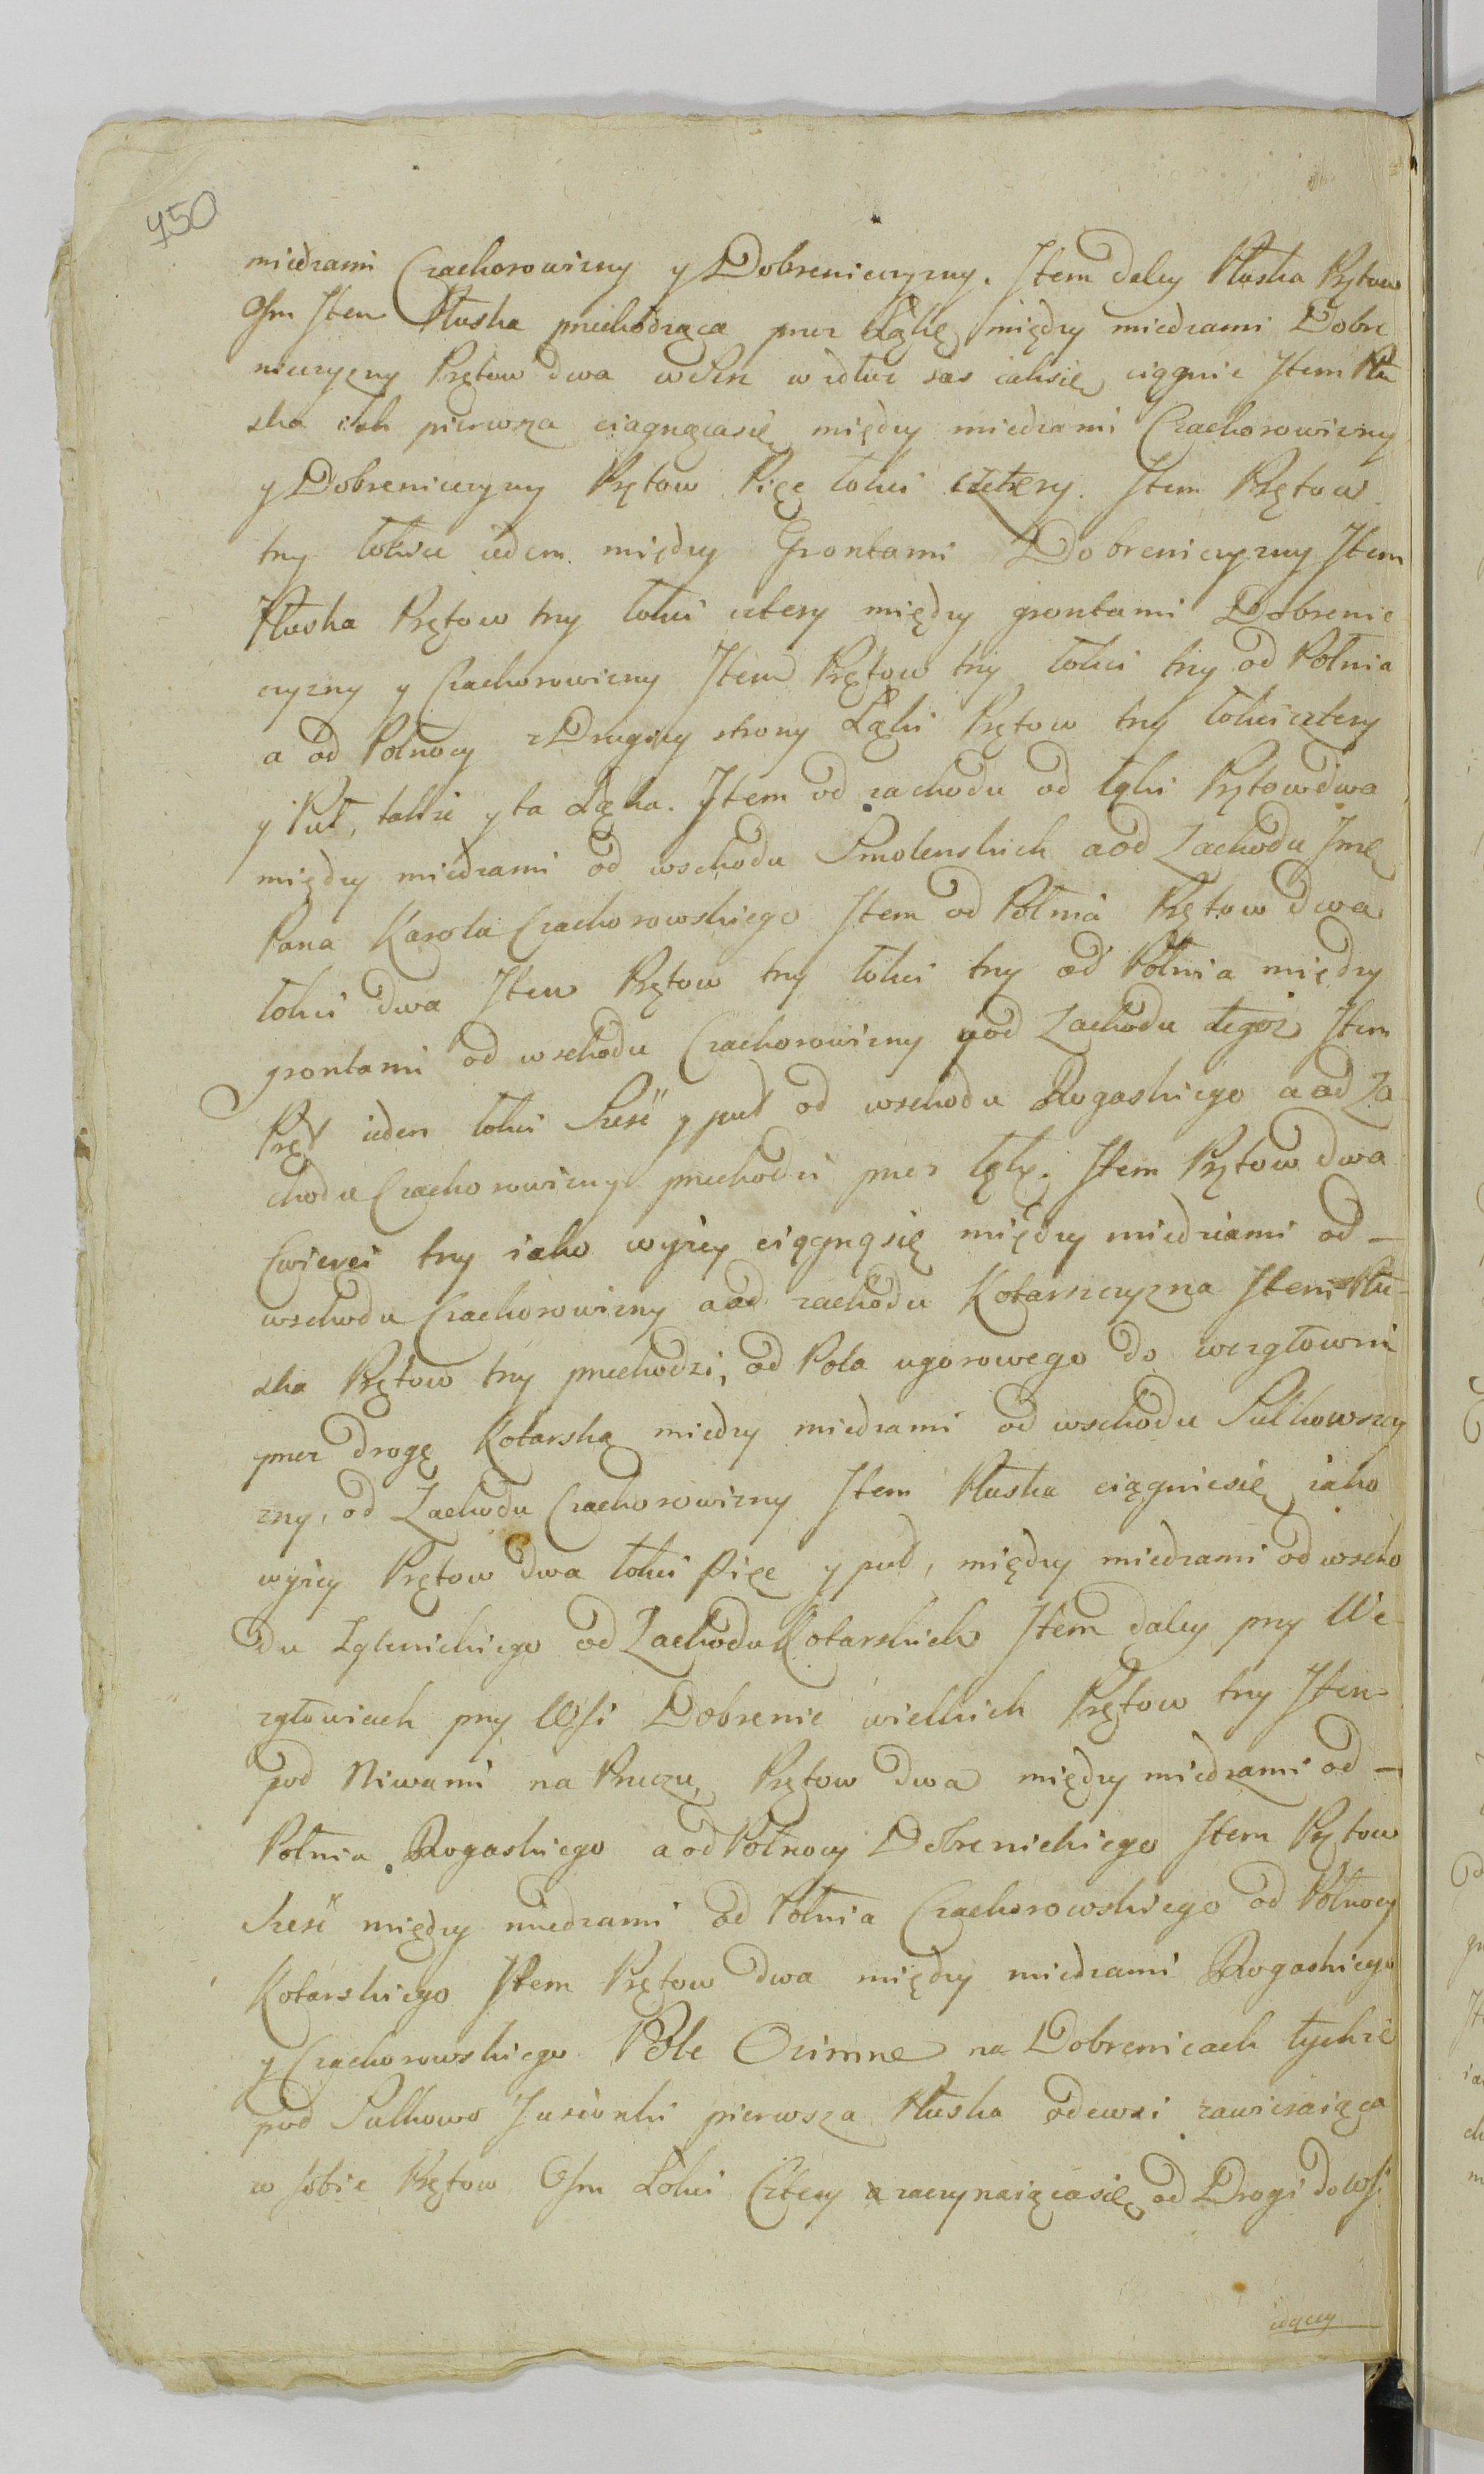 450
miedzami Czachorowizny y Dobreniczyzny. Item daley Kluska Prętow
Osm Item Kluska przechodząca przez Łąkę między miedzami Dobre
niczyzny Prętow dwa wdłuz zas iak się ciągnie Item Klu
ska iak pierwsza ciągnącasię między miedzami Czachorowizny
y Dobreniczyzny Prętow Pięc łokci cztery. Item Prętow
trzy łokiec ieden między Grontami Dobreniczyzny Item
Kluska Prętow trzy łokci cztery między grontami Dobrenie
czyzny y Czachorowizny Item Prętow trzy łokci trzy od Połnia
a od Połnocy z Drugiey strony Łąki Prętow trzy łokci cztery
y Puł, takze y ta Łąka. Item od zachodu od łąki Prętow dwa
między miedzami od wschodu Smolenskich a od Zachodu Jmę
Pana Karola Czachorowskiego Item od Połnia Prętow dwa
łokci dwa Item Prętow trzy łokci trzy od Połnia między
grontami od wschodu Czachorowizny y od Zachodu tegoz Item
Pręt ieden łokci Szesc y puł od wschodu Rogaskiego a od Za
chodu Czachorowizny przechodzi przez łąkę. Item Prętow dwa
Cwierci trzy iako wyzey ciągnąsię między miedziami od —
wschodu Czachorowizny a od zachodu Kotarszczyzna Item Klu-
ska Prętow trzy przechodzi, od Pola ugorowego do wezgłowni
przez drogę Kotarską miedzy miedzami od wschodu Sulkowszczy
zny, od Zachodu Czachorowizny Item Kluska ciągniesię iako
wyzey Prętow dwa łokci pięc y puł, między miedzami od wscho
du Zglenickiego od Zachodu Kotarskich Item daley przy We-
zgłowiach przy Wsi Dobrenie wielkich Prętow trzy Item
pod Niwami na Prętow dwa między miedzami od —
Połnia Rogaskiego a od Połnocy Dobrenickiego Item Prętow
Szesc między miedzami od Połnia Czachorowskiego od Połnocy
Kotarskiego Item Prętow dwa między miedzami Rogaskiego
y Czachorowskiego Pole Ozimne na Dobrenicach tychze
pod Sulkowo pierwsza Kluska odewsi zawieraiąca
w sobie Prętow Osm Łokci Cztery a zaczynaiącasię od Drogi do Wsi